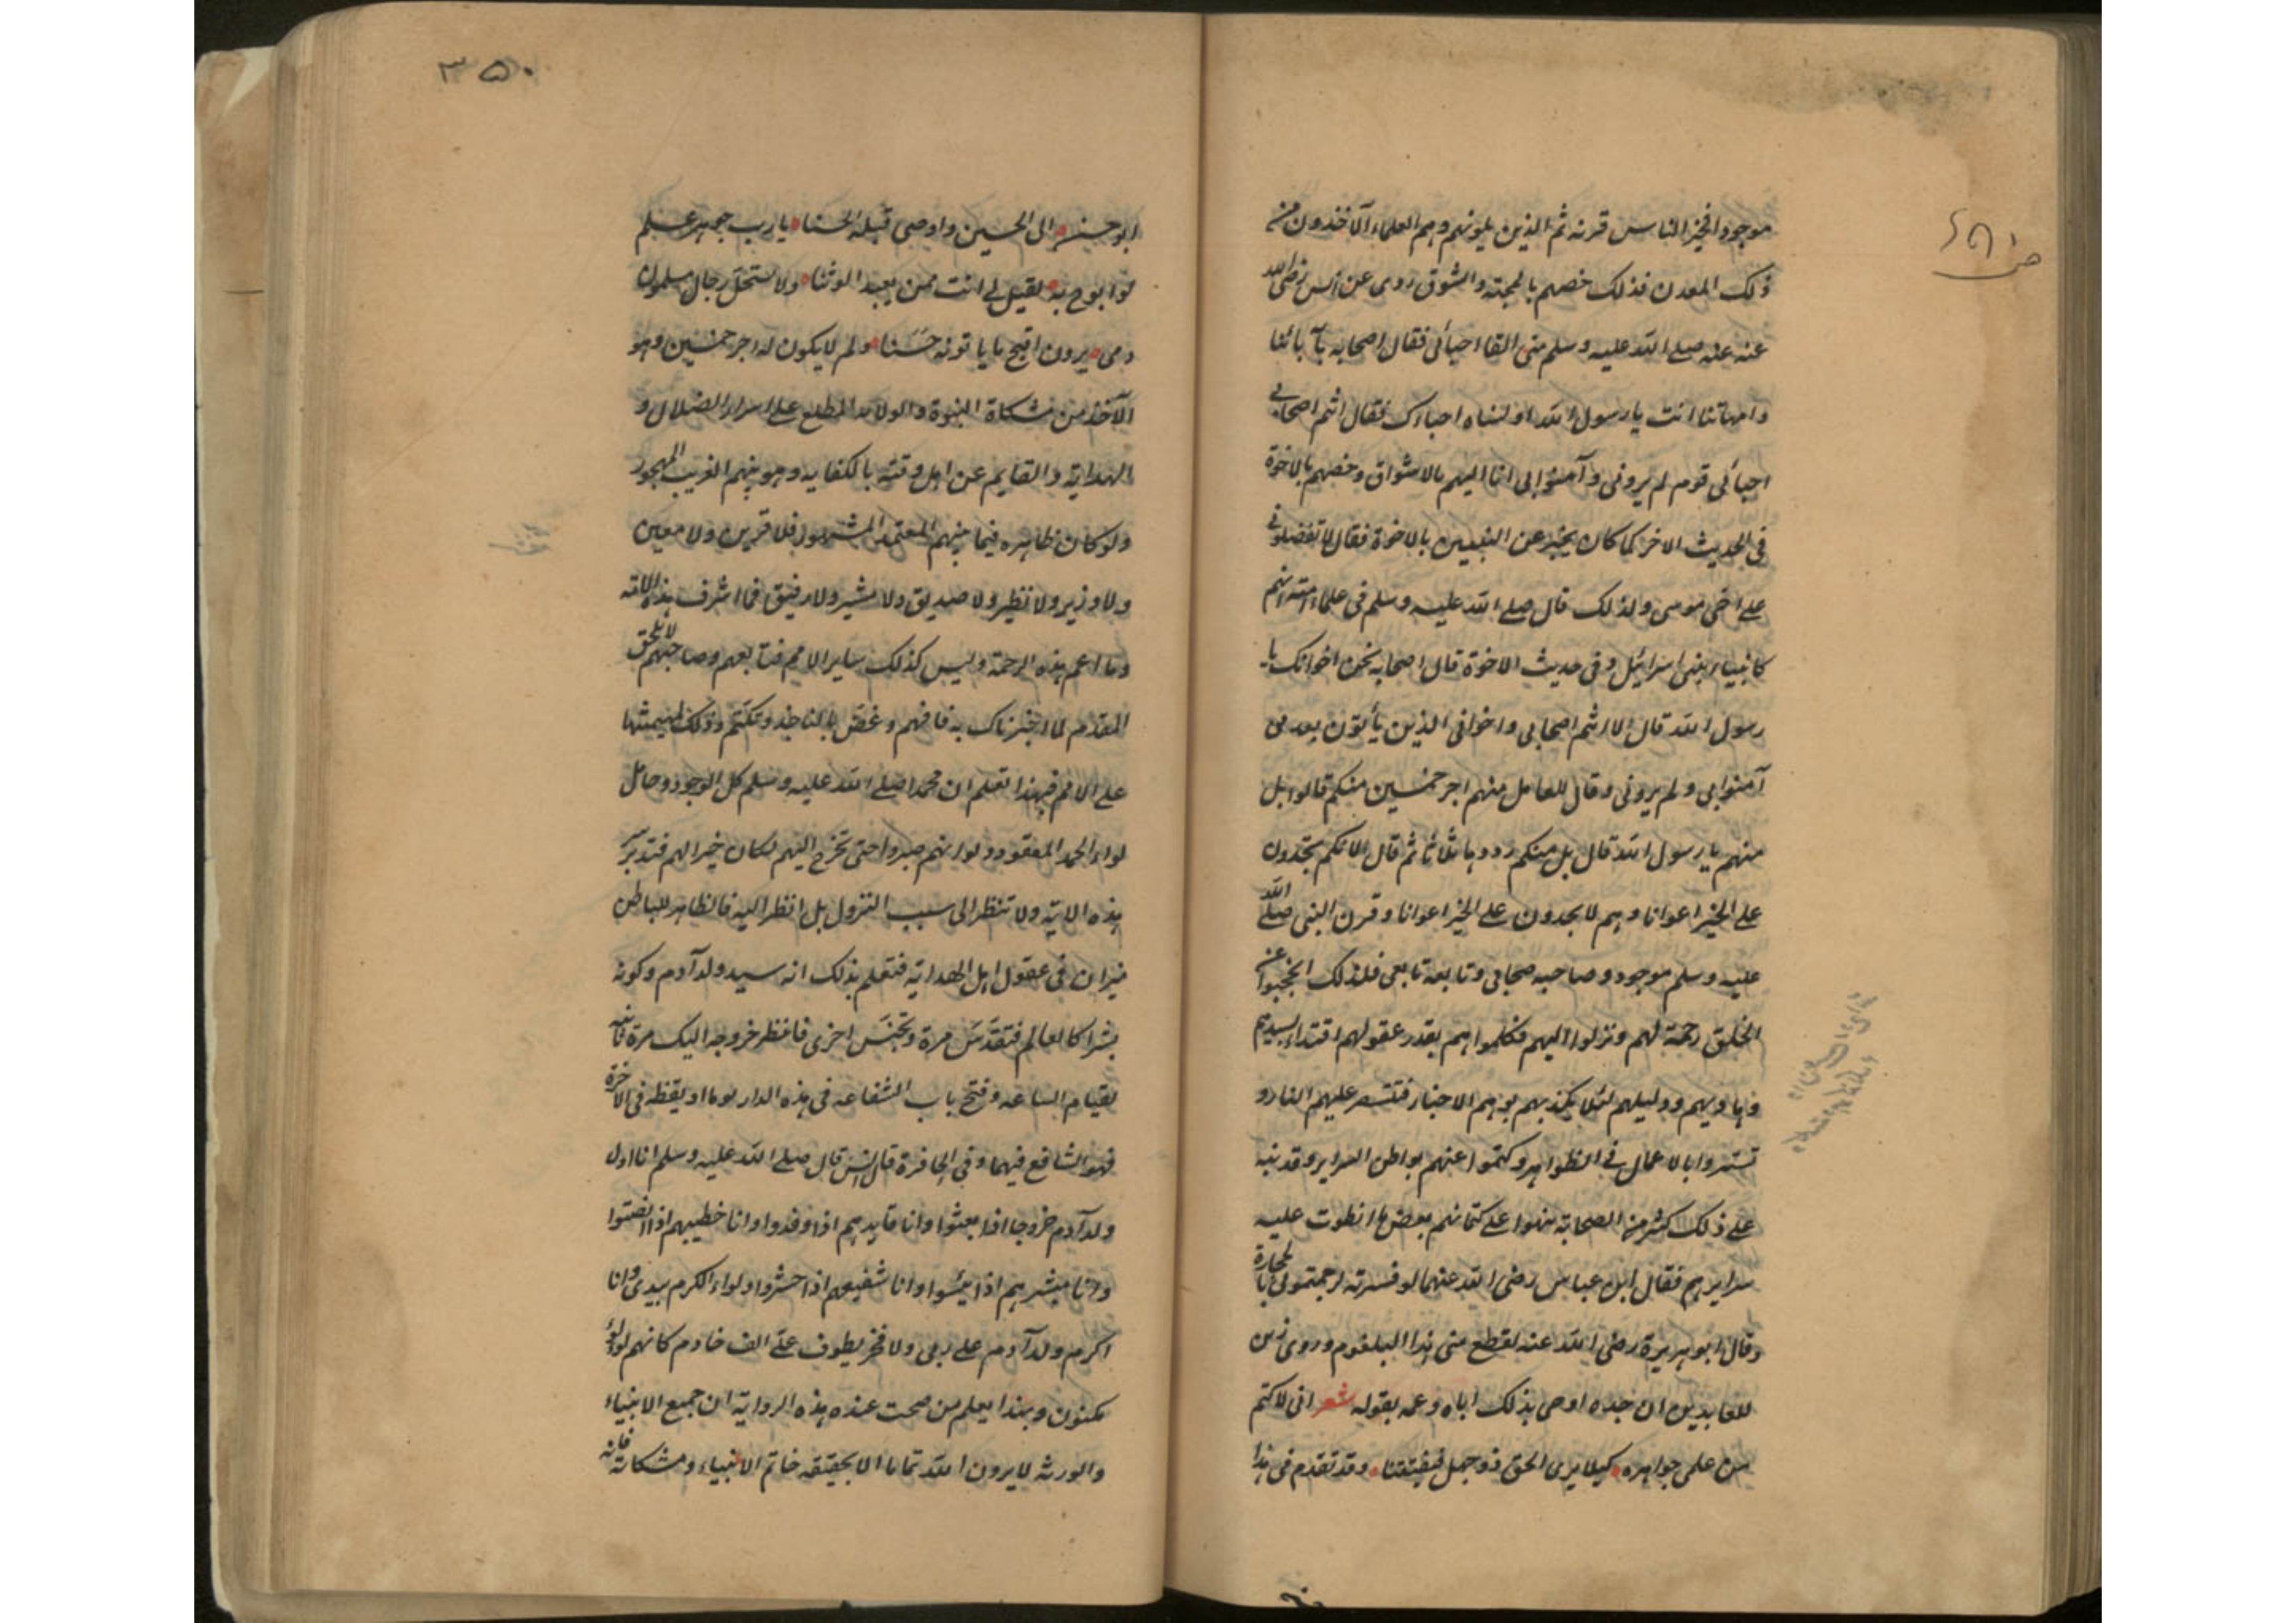 موجودا فخير الناس قرنه ثم الذين يلونهم وهم العلماء الآخذون من
ذلك المعدن فذلك خصهم بالمحبة والشوق روى عن انس رضى الله
عنه عنه صلى الله عليه وسلم متى القا احبائى فقال اصحابه بآبائنا
وامهاتنا انت يا رسول الله اولسناه احباءك فقال انتم اصحابى
احبائى قوم لم يرونى وآمنوا بى انا اليهم بالاشواق وخصهم بالاخوة
فى الحديث الاخر كما كان يخبر عن النبيين بالاخوة فقال لا تفضلونى
على اخى موسى ولذلك قال صلى الله عليه وسلم فى علماء امته انهم
كانبياء بنى اسرائيل وفى حديث الاخوة قال اصحابه نحن اخوانك يا
رسول الله قال لا انتم اصحابى واخوانى الذين يأتون بعدى
آمنوا بى ولم يرونى وقال للعامل منهم اجر خمسين منكم قالوا بل
منهم يا رسول الله قال بل منكم رددها ثلاثا ثم قال لانكم تجدون
على الخير اعوانا وهم لا يجدون على الخير اعوانا وقرن النبى صلى الله
عليه وسلم موجود وصاحبه صحابى وتابعه تابعى فلذلك احتجبوا عن
الخلق رحمة لهم ونزلوا اليهم فكلموهم بقدر عقولهم اقتداء بسيدهم
وهاديهم ودليلهم لئلا يكذبهم بوهم الاخبار فتستعر عليهم النار و
تستروا بالاعمال فى الظواهر وكتموا عنهم بواطن السراير وقد نبه
على ذلك كثير من الصحابة نبهوا على كتمانهم بعض ما انطوت عليه
سرايرهم فقال ابن عباس رضى الله عنهما لو فسرته لرجمتمونى بالحجارة
وقال ابو هريرة رضى الله عنه لقطع منى هذا البلعوم وروى زين
العابدين ان جده اوصى بذلك اباه وعمه بقوله شعر انى لاكتم
من علمى جواهره كيلا يرى الحق ذو جهل فيفتتنا وقد تقدم فى هذا
ص ٤٥١
٣٥٠
ابو حسن الى الحسين واوصى قبله الحسنا يا رب جوهر علم
لو ابوح به لقيل لى انت ممن يعبد الوثنا ولاستحل رجال مسلمون
دمى يرون اقبح ما ياتونه حسنا ولم لا يكون له اجر خمسين وهو
الآخذ من مشكاة النبوة والولاية المطلع على اسرار الضلال و
الهداية والقايم عن اهل وقته بالكفاية وهو بينهم الغريب المهجور
ولو كان ظاهره فيما بينهم المعتمد المشهور فلا قرين ولا معين
ولا وزير ولا نظير ولا صديق ولا مشير ولا رفيق فما اشرف هذه الامة
وما اعم هذه الرحمة وليس كذلك ساير الامم فتابعهم وصاحبهم لا يلحق
المقدم لما اخبرناك به فافهم وغض بالناجذ وتكتم وذلك
على الامم فبهذا تعلم ان محمدا صلى الله عليه وسلم كل الوجود وحامل
لواء الحمد المعقود ولو انهم صبروا حتى تخرج اليهم لكان خيرا لهم فتدبر سر
هذه الاية ولا تنظر الى سبب النزول بل انظر اليه فالظاهر للباطن
ميزان فى عقول اهل الهداية فتعلم بذلك انه سيد ولد آدم وكونه
بشرا كالعالم فتقدس مرة وتجنس اخرى فانظر خروجه اليك مرة ثانية
لقيام الساعة وفتح باب الشفاعة فى هذه الدار نوما او يقظة فى الآخرة
فهو الشافع فيهما وفى الحافرة قال انس قال صلى الله عليه وسلم انا اول
ولد آدم خروجا اذا بعثوا وانا قايدهم اذا وفدوا وانا خطيبهم اذا انصتوا
وانا مبشرهم اذا يئسوا وانا شفيعهم اذا حشروا ولواء الكرم بيدى وانا
اكرم ولد آدم على ربى ولا فخر يطوف على الف خادم كانهم لؤلؤ
مكنون وبهذا يعلم من صحت عنده هذه الرواية ان جميع الانبياء
والورثة لا يرون الله تماما الا بحقيقة خاتم الانبياء ومشكاته فانه